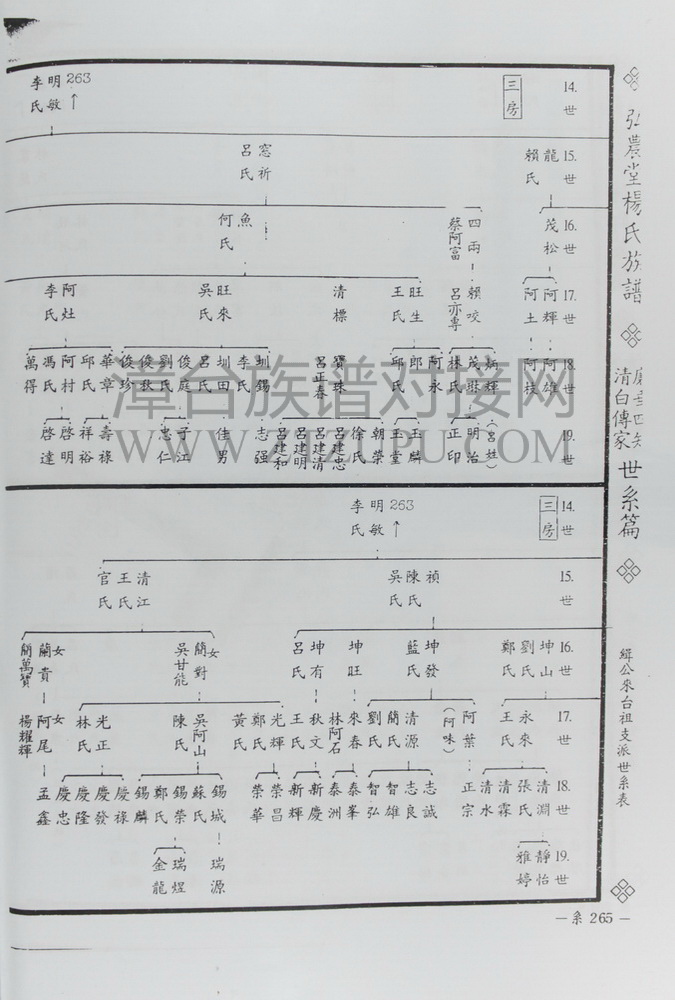 弘農堂楊氏族譜
清白傳家
世系篇
緝公來台祖支派世系表
14. 世
三房
263 ↑
明敏
李氏
15. 世
龍
賴氏
窓祈
呂氏
16. 世
茂松
四兩
蔡阿富
魚
何氏
17. 世
阿輝
阿土
賴咬
呂亦專
旺生
王氏
清標
旺來
吳氏
阿灶
李氏
18. 世
阿雄
阿枝
炳輝
(呂姓)
茂樹
林氏
阿永
郎氏
邱氏
寶珠
呂正春
圳錫
李氏
圳田
呂氏
俊庭
劉氏
俊秋
俊珍
華章
邱氏
阿村
馮氏
萬得
19. 世
明治
正印
玉麟
玉堂
朝榮
徐氏
呂建忠
呂建清
呂建明
呂建和
志强
佳男
子江
忠仁
壽祿
祥裕
啓明
啓達
14. 世
三房
263 ↑
明敏
李氏
15. 世
禎
陳氏
吳氏
清江
王氏
官氏
16. 世
坤山
劉氏
鄭氏
坤發
藍氏
坤旺
坤有
呂氏
女
簡對
吳甘能
女
蘭貴
簡萬寶
17. 世
永來
王氏
阿葉
(阿味)
清源
簡氏
劉氏
來春
林阿石
秋文
王氏
光輝
鄭氏
黃氏
吳阿山
陳氏
光正
林氏
女
阿尾
楊耀輝
18. 世
清淵
張氏
清霖
清水
正宗
志誠
志良
智雄
智弘
泰峯
泰洲
新慶
新輝
榮昌
榮華
錫城
蘇氏
錫榮
鄭氏
錫麟
慶祿
慶發
慶隆
慶忠
孟鑫
19. 世
靜怡
雅婷
瑞源
瑞煜
金龍
— 系 265 —
漳台族谱对接网
WWW.ZTZUPU.COM